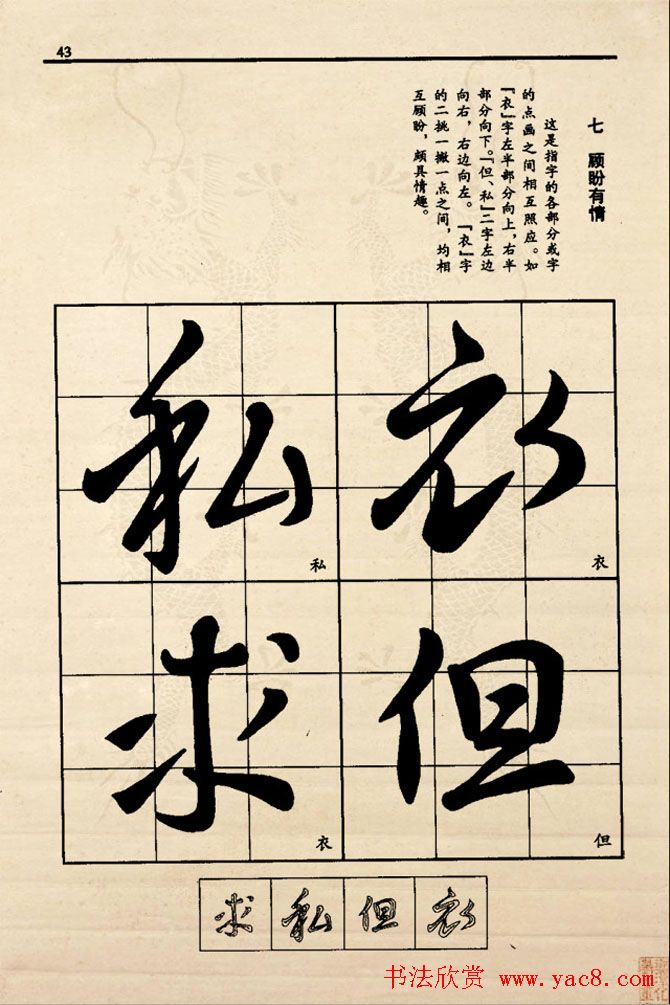 43
七 顾盼有情
这是指字的各部分或字
的点画之间相互照应。如
『衣』字左半部分向上,右半
部分向下。『但、私』二字左边
向右,右边向左。『衣』字
的二挑一撇一点之间,均相
互顾盼,颇具情趣。
衣
衣
但
但
私
私
求
衣
衣但私求
书法欣赏 www.yac8.com